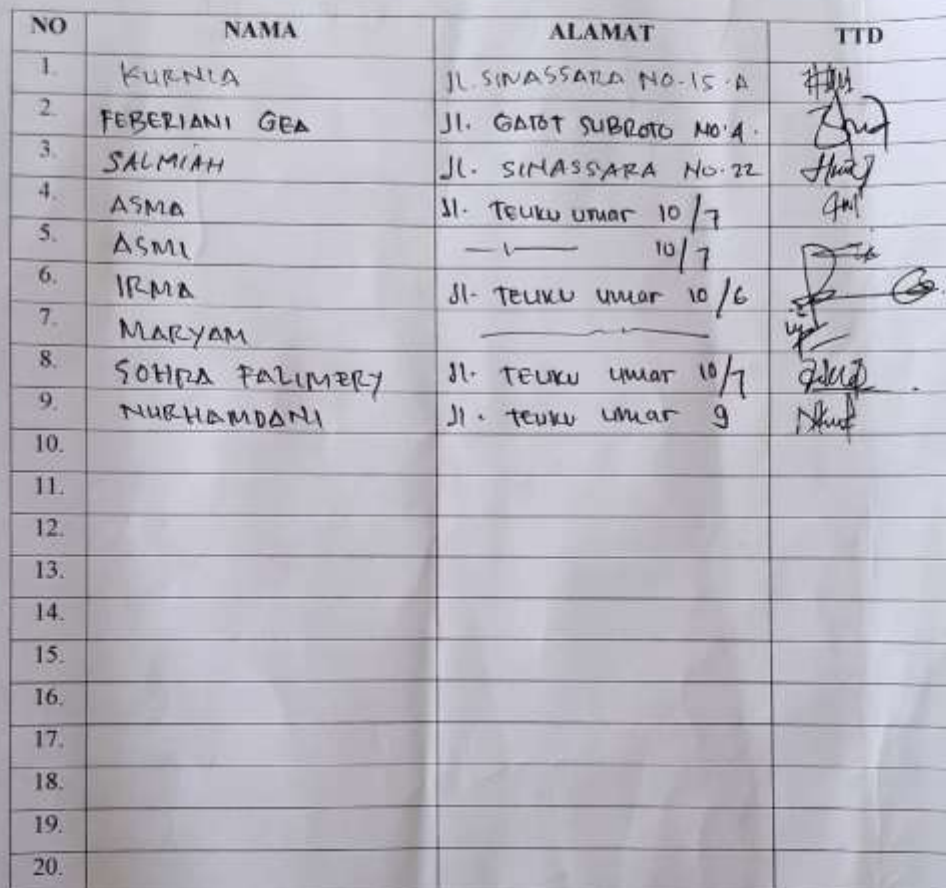 NO NAMA ALAMAT TTD
1. KURNIA Jl. SINASSARA NO.15.A
2. FEBERIANI GEA Jl. GATOT SUBROTO NO.4.
3. SALMIAH Jl. SINASSARA NO.22
4. ASMA Jl. Teuku umar 10/7
5. ASMI 10/7
6. IRMA Jl. Teuku umar 10/6
7. MARYAM
8. SOHRA PALIMERY Jl. Teuku umar 10/7
9. NURHAMDANI Jl. Teuku umar 9
10.
11.
12.
13.
14.
15.
16.
17.
18.
19.
20.